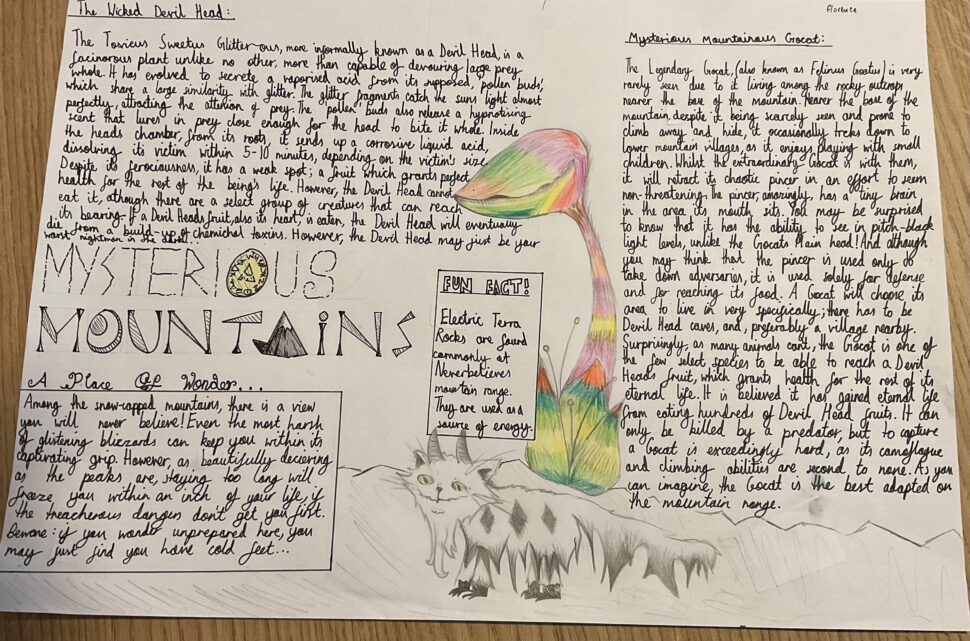 The Wicked Devil Head:
The Toxicus Sweetus Glitter-ous, more informally known as a Devil Head, is a
facinorous plant unlike no other, more than capable of devouring large prey
whole. It has evolved to secrete a vaporised acid from its supposed, 'pollen buds',
which share a large similarity with glitter. The glitter fragments catch the suns light almost
perfectly, attracting the attention of prey. The 'pollen' buds also release a hypnotising
scent that lures in prey close enough for the head to bite it whole. Inside
the heads chamber, from its roots, it sends up a corrosive liquid acid,
dissolving its victim within 5-10 minutes, depending on the victim's size.
Despite its ferociousness, it has a weak spot; a fruit which grants perfect
health for the rest of the being's life. However, the Devil Head cannot
eat it, although there are a select group of creatures that can reach
its bearing. If a Devil Heads fruit, also its heart is eaten, the Devil Head will eventually
die from a build-up of chemichal toxins. However, the Devil Head may just be your
worst nightmare in the dark...
MYSTERIOUS
MOUNTAINS
A Place Of Wonder...
Among the snow-capped mountains, there is a view
you will never believe! Even the most harsh
of glistening blizzards can keep you within its
captivating grip. However, as beautifully decieving
as the peaks are, staying too long will
freeze you within an inch of your life, if
the treacherous dangers don't get you first.
Beware: if you wander unprepared here, you
may just find you have cold feet...
FUN FACT!
Electric Terra
Rocks are found
commonly at
Neverbelieves
mountain range.
They are used as a
source of energy.
Florence
Mysterious Mountainous Gocat:
The Legendary Gocat, (also known as Felinus Goatus) is very
rarely seen due to it living among the rocky outcrops
nearer the base of the mountain. Nearer the base of the
mountain, despite it being scarcely seen and prone to
climb away and hide, it occasionally treks down to
lower mountain villages, as it enjoys playing with small
children. Whilst the extraordinary Gocat is with them,
it will retract its chaotic pincer in an effort to seem
non-threatening. The pincer, amazingly, has a tiny brain
in the area its mouth sits. You may be surprised
to know that it has the ability to see in pitch-black
light levels, unlike the Gocats main head! And although
you may think that the pincer is used only to
take down adversaries, it is used solely for defense
and for reaching its food. A Gocat will choose its
area to live in very specifically; there has to be
Devil Head caves, and, preferably a village nearby.
Surprisingly, as many animals cant, the Gocat is one of
the few select species to be able to reach a Devil
Heads fruit, which grants health for the rest of its
eternal life. It is believed it has gained eternal life
from eating hundreds of Devil Head fruits. It can
only be killed by a predator but to capture
a Gocat is exceedingly hard, as its camoflague
and climbing abilities are second to none. As you
can imagine, the Gocat is the best adapted on
the mountain range.